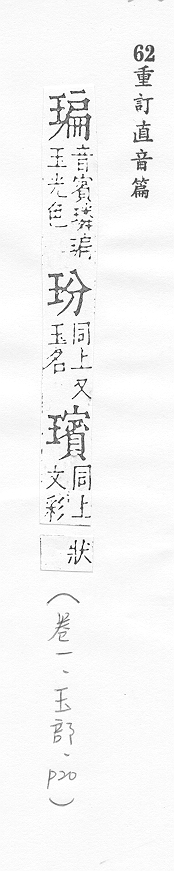 62重訂直音篇
㻞音賓璘㻞玉光色玢同上又玉名璸同上文彩狀(卷一、玉部、p20)